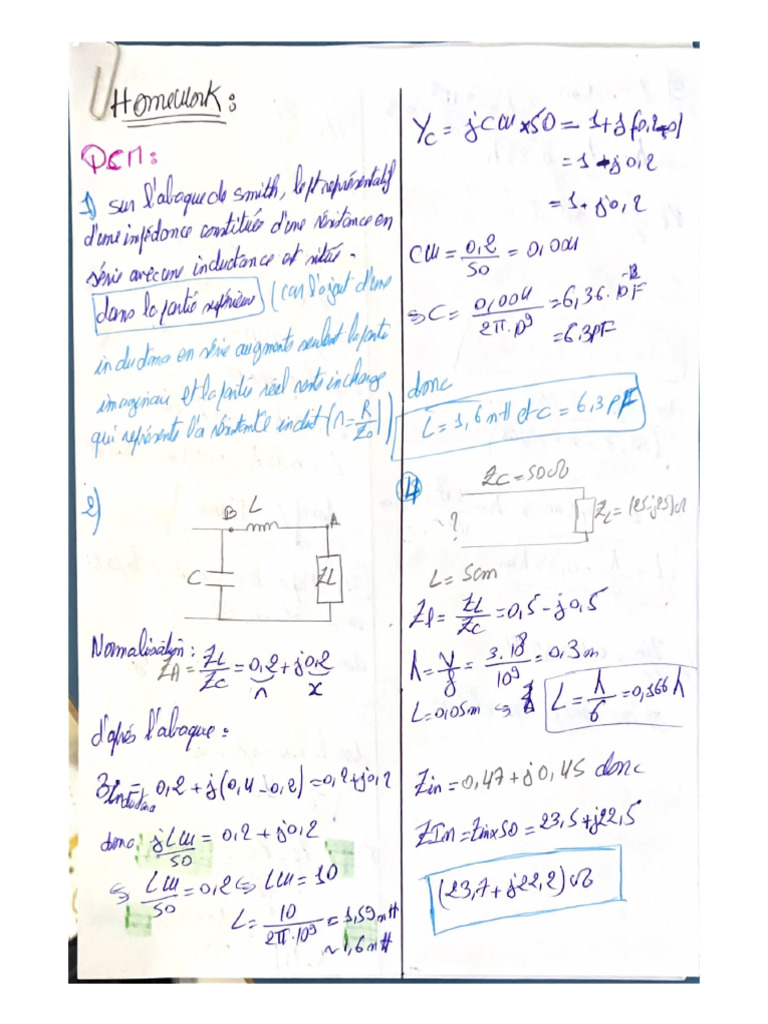 Homework:
QCM:
1) sur l'abaque de smith, le pt représentatif
d'une impédance constituée d'une résistance en
série avec une inductance et située.
dans la partie supérieure (car l'ajout d'une
inductance en série augmente seulent la partie
imaginaire et la partie réel reste inchangé
qui représente la résistante induit (r=R/Z0))
2)
B L A
C ZL
Normalisation:
ZA = ZL/ZC = 0,2 + j0,2
r x
d'après l'abaque:
= 0,2 + j(0,4 - 0,2) = 0,2 + j0,2
donc jLω/50 = 0,2 + j0,2
⇔ Lω/50 = 0,2 ⇔ Lω = 10
L = 10/2π·10⁹ = 1,59 nH
~ 1,6 nH
Yc = jCω×50 = 1 + j(0,2-0)
= 1 + j0,2
= 1 + j0,2
Cω = 0,2/50 = 0,004
⇔ C = 0,004/2π·10⁹ = 6,36·10⁻¹² F
= 6.3PF
donc
L = 1,6 nH et C = 6,3 PF
4)
ZC = 50Ω
? ZL = (25-j25)Ω
L = 5cm
Zl = ZL/ZC = 0,5 - j0,5
λ = V/f = 3.10⁸/10⁹ = 0,3m
L = 0,05m ⇔ L = λ/6 = 0,166λ
Zin = 0,47 + j0,45 donc
ZIn = Zin×50 = 23,5 + j22,5
(23,7 + j22,2)Ω